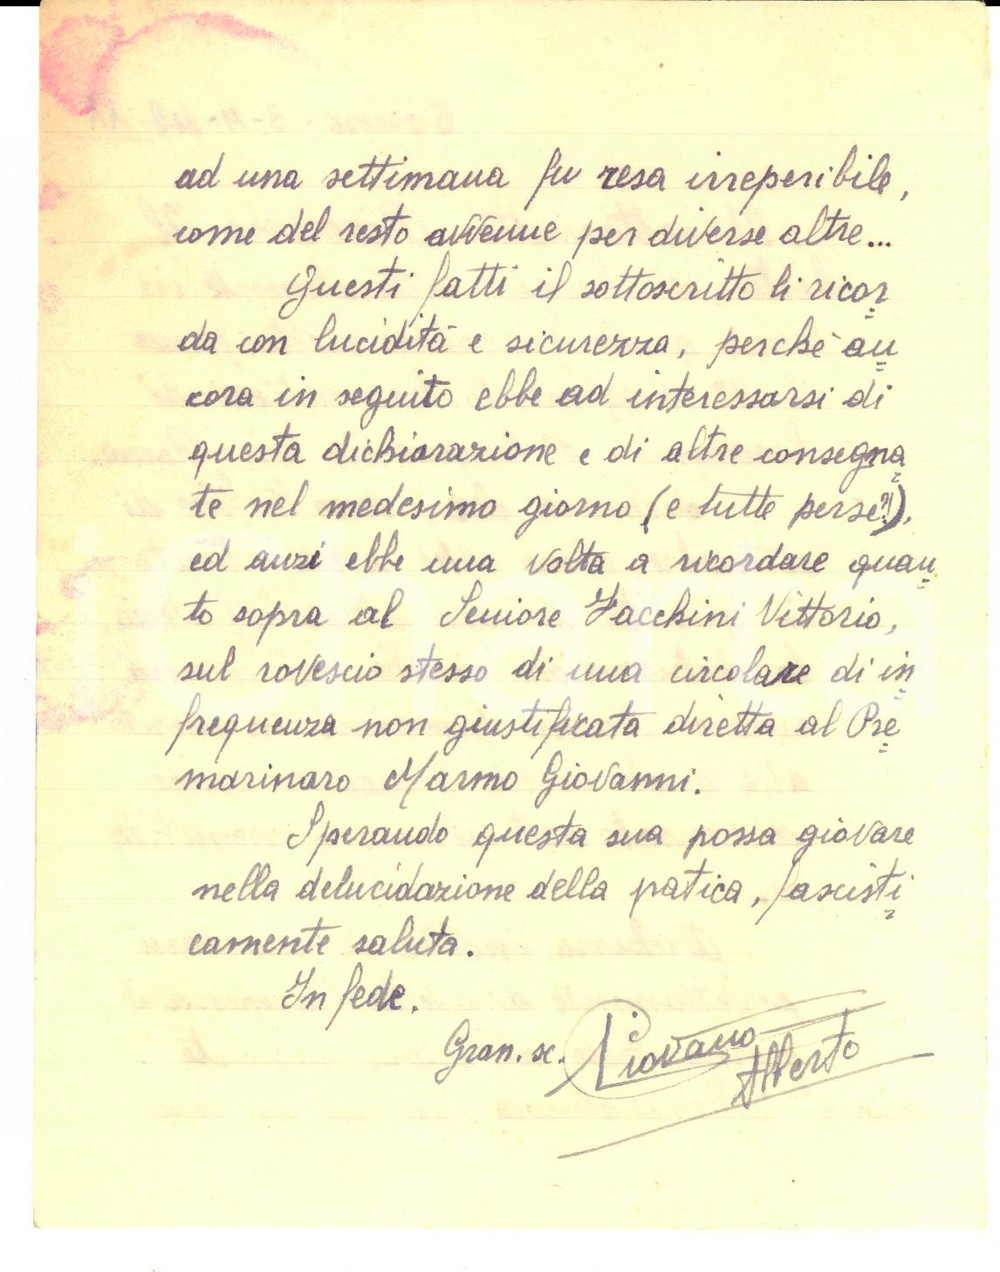 ad una settimana fu resa irreperibile,
come del resto avvenne per diverse altre...
Questi fatti il sottoscritto li ricor=
da con lucidità e sicurezza, perchè an=
cora in seguito ebbe ad interessarsi di
questa dichiarazione e di altre consegna=
te nel medesimo giorno (e tutte perse?!),
ed anzi ebbe una volta a ricordare quan=
to sopra al Seniore Facchini Vittorio,
sul rovescio stesso di una circolare di in=
frequenza non giustificata diretta al Pre=
marinaro Marmo Giovanni.
Sperando questa sua possa giovare
nella delucidazione della pratica, fascisti=
camente saluta.
In fede.
Gran. sc. Piovano
Alberto